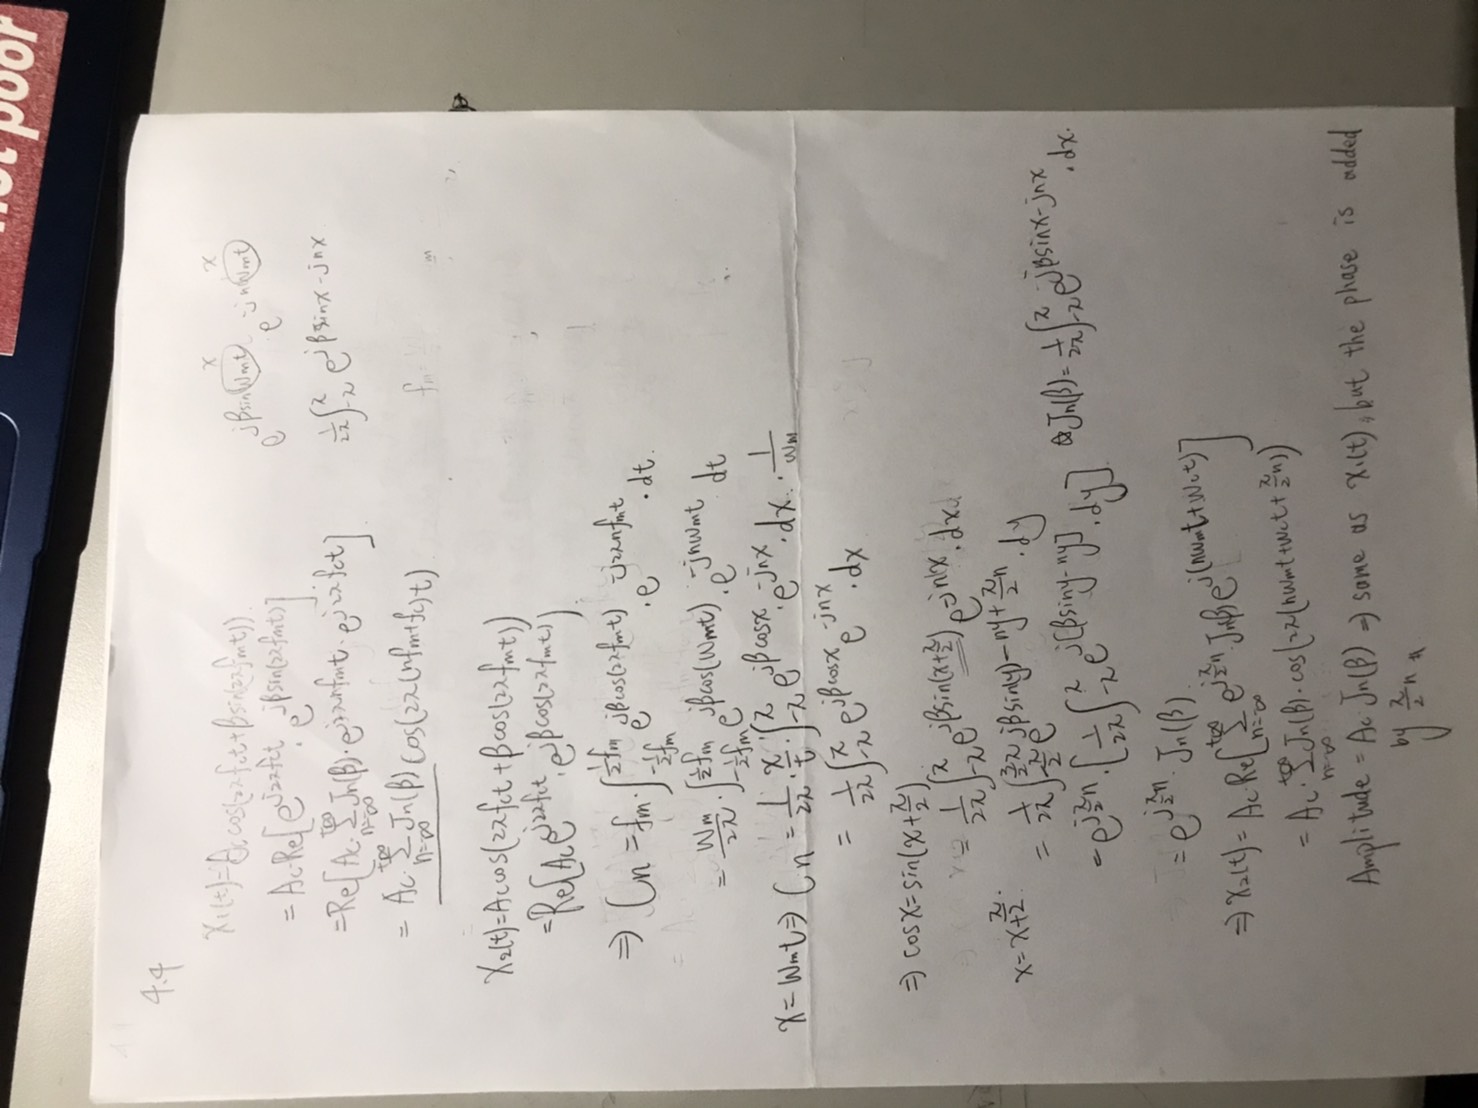 not poor
4.4
x₁(t)=Ac cos(2πfct+βsin(2πfmt)).
= Ac·Re[e^{j2πfct}·e^{jβsin(2πfmt)}]
=Re[Ac·∑_{n=-∞}^{+∞}Jn(β)·e^{j2πnfmt}·e^{j2πfct}]
= Ac·∑_{n=-∞}^{+∞}Jn(β) cos(2π(nfm+fc)t)
x x
e^{jβsin(wmt)} e^{-jn(wmt)}
1/2π ∫_{-π}^{π} e^{jβsinx-jnx}
fm=
x₂(t)=Ac cos(2πfct+βcos(2πfmt))
=Re[Ace^{j2πfct}·e^{jβcos(2πfmt)}].
⇒ Cn = fm·∫_{-½fm}^{½fm} e^{jβcos(2πfmt)}·e^{-j2πnfmt}·dt.
= wm/2π·∫_{-½fm}^{½fm} e^{jβcos(wmt)}·e^{-jnwmt} dt
x=wmt⇒ Cn = 1/2π·x/t·∫_{-π}^{π} e^{jβcosx}·e^{-jnx}·dx.·1/wm
= 1/2π ∫_{-π}^{π} e^{jβcosx} e^{-jnx}·dx
⇒ cosx=sin(x+π/2)
= 1/2π ∫_{-π}^{π} e^{jβsin(x+π/2)} e^{-jnx}·dx.
x=x+π/2: = 1/2π ∫_{-π/2}^{3/2π} e^{jβsin(y)-ny+π/2n}·dy
=e^{jπ/2n}·[1/2π ∫_{-π}^{π} e^{j[βsiny-ny]}·dy] ☆Jn(β)=1/2π ∫_{-π}^{π} e^{jβsinx-jnx}·dx.
= e^{jπ/2n}·Jn(β).
⇒ x₂(t)= Ac·Re[∑_{n=-∞}^{+∞} e^{jπ/2n}·Jn(β) e^{j(nwmt+wct)}]
= Ac·∑_{n=-∞}^{+∞}Jn(β)·cos(2π(nwmt+wct+π/2n))
Amplitude = Ac Jn(β) ⇒ same as x₁(t), but the phase is added
by π/2n #